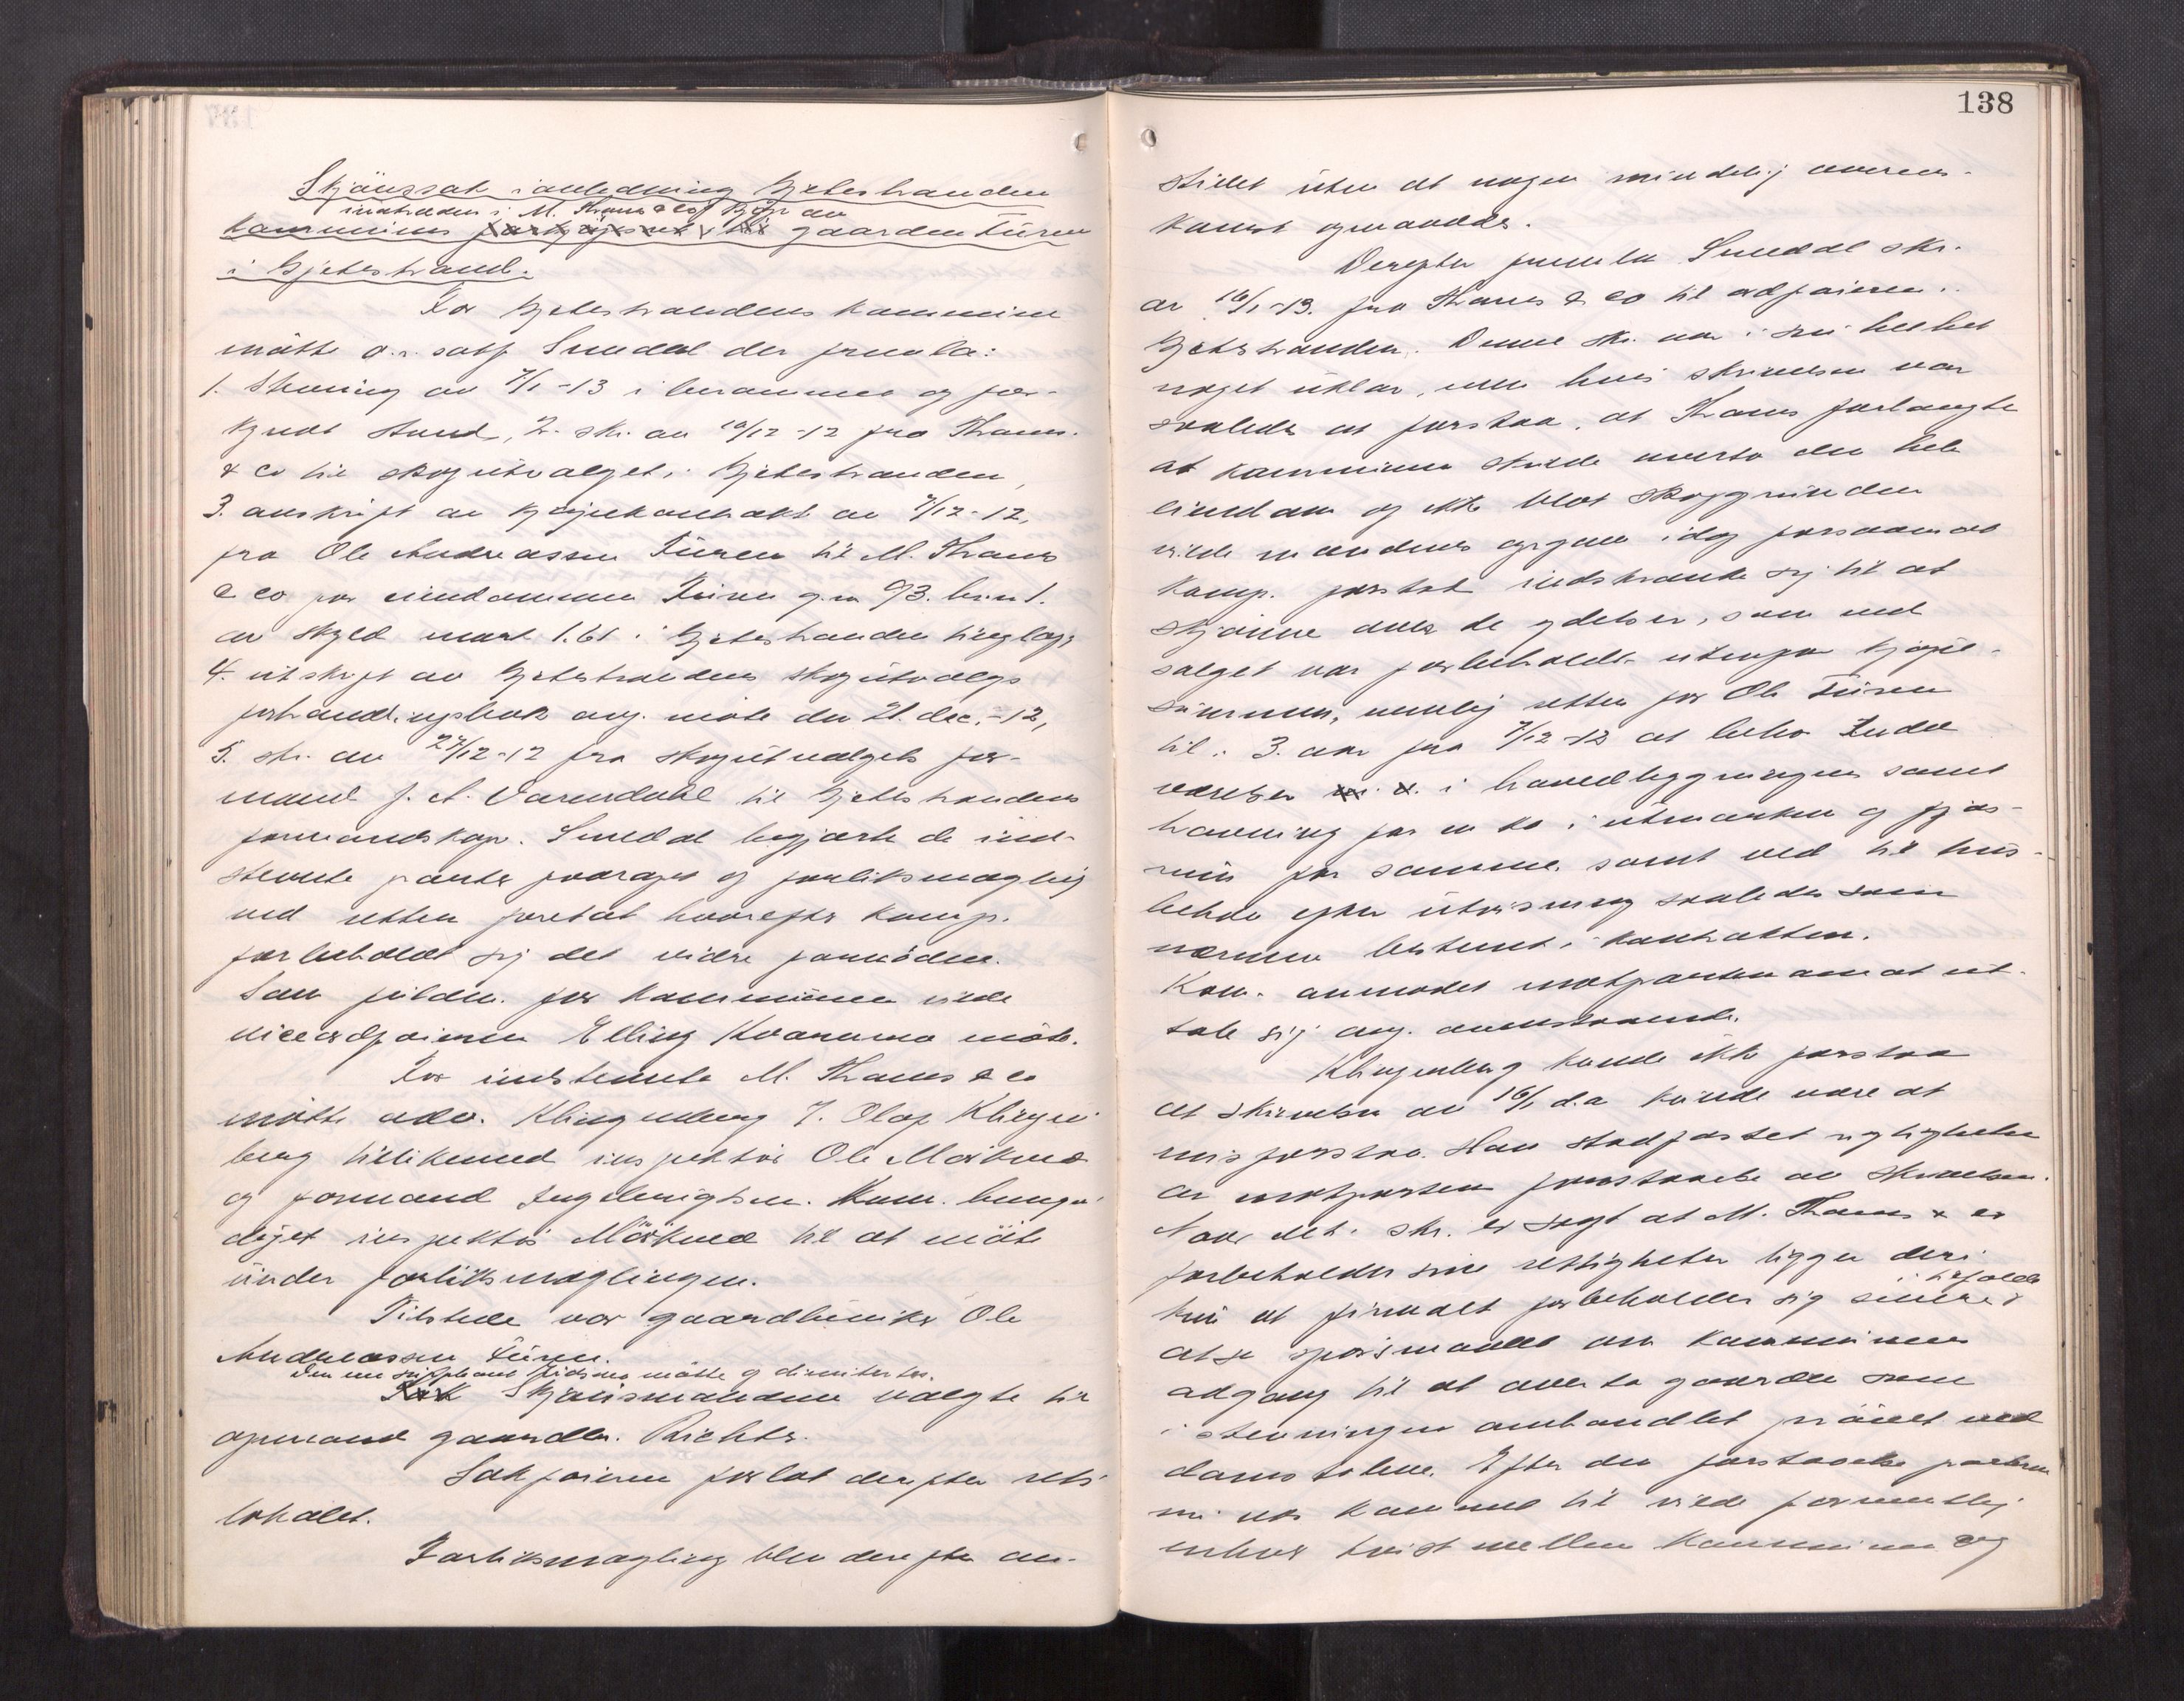 Skjönssak i anledning Gjeitestranden
indtræden i M. Thams & Co's kjøp av
kommunes forkjøpsret til gaarden Furen
i Gjeitestrand.
For Gjeitestrandens kommune
møtte o.r.sakf. Smedal der fremla:
1. Stevning av 7/1-13 i berammet og for-
kyndt stand, 2. skr. av 10/12-12 fra Thams
& Co til skogutvalget i Gjeitestranden,
3. avskrift av kjøpekontrakt av 7/12-12,
fra Ole Andreassen Furen til M. Thams
& Co for eiendommen Furen g.n 93. br.n 1.
av skyld mark 1.61 i Gjeitestranden tinglag,
4. utskrift av Gjeitestrandens skogutvalgs
forhandlingsbok ang. møte den 21. dec.-12,
5. skr. av 27/12-12 fra skogutvalgets for-
mand J. A. Varnesdahl til Gjeitestrandens
formandskap. Smedal begjærte de ind-
stevnte parter paaropt og forliksmægling
ved retten foretat hvorefter komp.
forbeholdt sig det videre fornødne.
Som fuldm. for kommunen vilde
viceordføreren Elling Kvamme møte.
For indstevnte M. Thams & Co
møtte adv. Klingenberg f. Olaf Klingen-
berg tillikemed inspektør Ole Mørkved
og formand Ingebrigtsen. Kom. bemyn-
diget inspektør Mørkved til at møte
under forliksmæglingen.
Tilstede var gaardbruker Ole
Andreassen Furen.
Den ene møtte og dimitertes.
Skjønsmændene valgte til
opmand gaardbr. Richter.
Sakførerne forlot derefter rets-
lokalet.
Forliksmægling blev derefter an-
138
stillet uten at nogen mindelig overens-
komst opnaaddes.
Derefter fremla Smedal skr.
av 16/1-13. fra Thams & Co til ordføreren i
Gjeitestranden. Denne skr. var i sin helhet
noget uklar, men hvis skrivelsen var
saaledes at forstaa, at Thams forlangte
at kommunen skulde overta den hele
eiendom og ikke blot skoggrunden
vilde mændenes opgave idag forsaavidt
komp. forstod indskrænke sig til at
skjønne over de ydelser, som ved
salget var forbeholdt utenfor kjøpe-
summen, nemlig retten for Ole Furen
til i 3. aar fra 7/12-12 at bebo
værelser i hovedbygningen samt
havning for en ko i utmarken og fjøs-
rum for samme, samt ved til hus-
behov efter utvisning saaledes som
nærmere bestemt i kontrakten.
Kom. anmodet motparten om at ut-
tale sig ang. ovenstaaende.
Klingenberg kunde ikke forstaa
at skrivelsen av 16/1 d.a kunde være at
misforstaa. Han stadfæstet rigtigheten
av motparten forstaaelse av skrivelsen.
Naar det i skr. er sagt at M. Thams & Co
forbeholder sine rettigheter ligger deri
kun at firmaet forbeholder sig i tilfælde
at se spørsmaalet om kommunen
adgang til at overta gaarden som
i stevningen omhandlet prøvet ved
domstolene. Efter den forstaaelse parterne
nu var kommet til vilde formentlig
enhver tvist mellem kommunen og